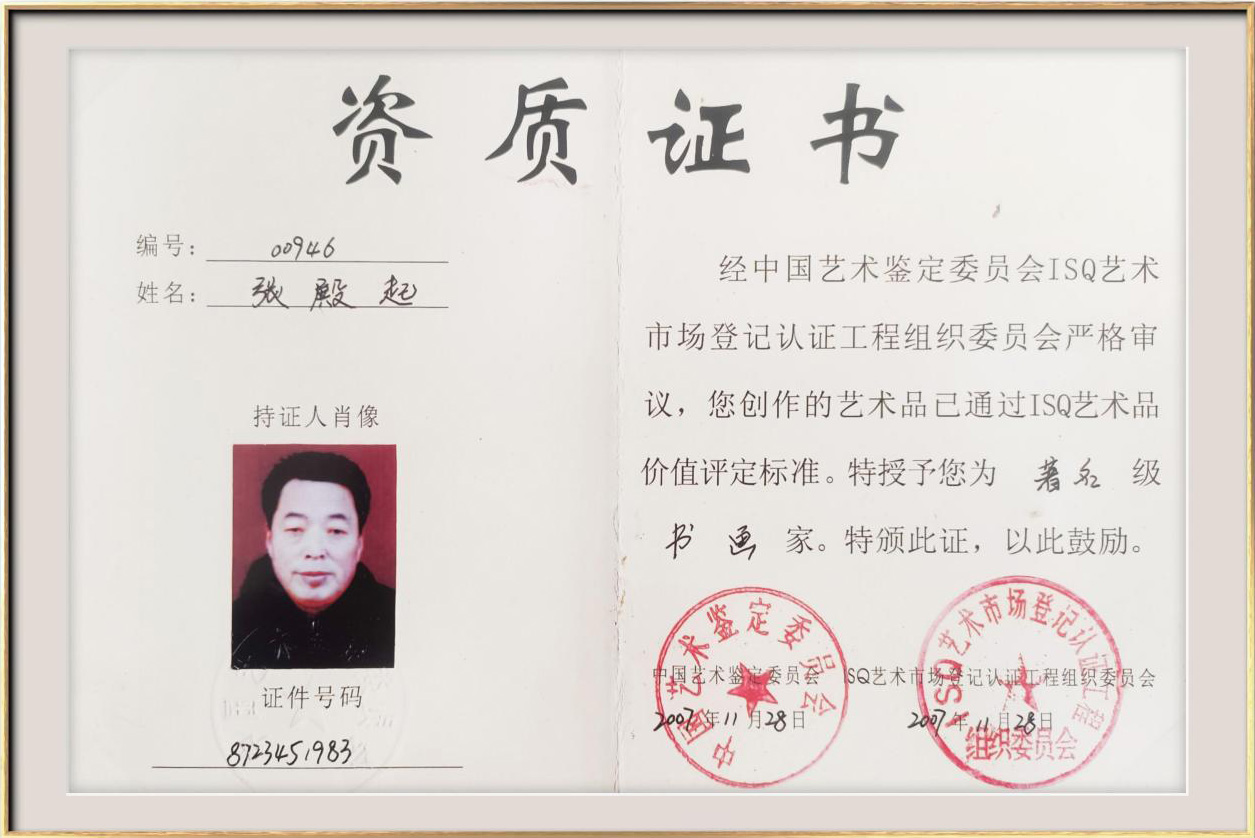 资质证书
编号：00946
姓名：张殿起
持证人肖像
证件号码
8723451983
经中国艺术鉴定委员会ISQ艺术
市场登记认证工程组织委员会严格审
议，您创作的艺术品已通过ISQ艺术品
价值评定标准。特授予您为 著名 级
书画 家。特颁此证，以此鼓励。
中国艺术鉴定委员会
ISQ艺术市场登记认证工程组织委员会
中国艺术鉴定委员会 ISQ艺术市场登记认证工程组织委员会
2007年11月28日 2007年11月28日
组织委员会